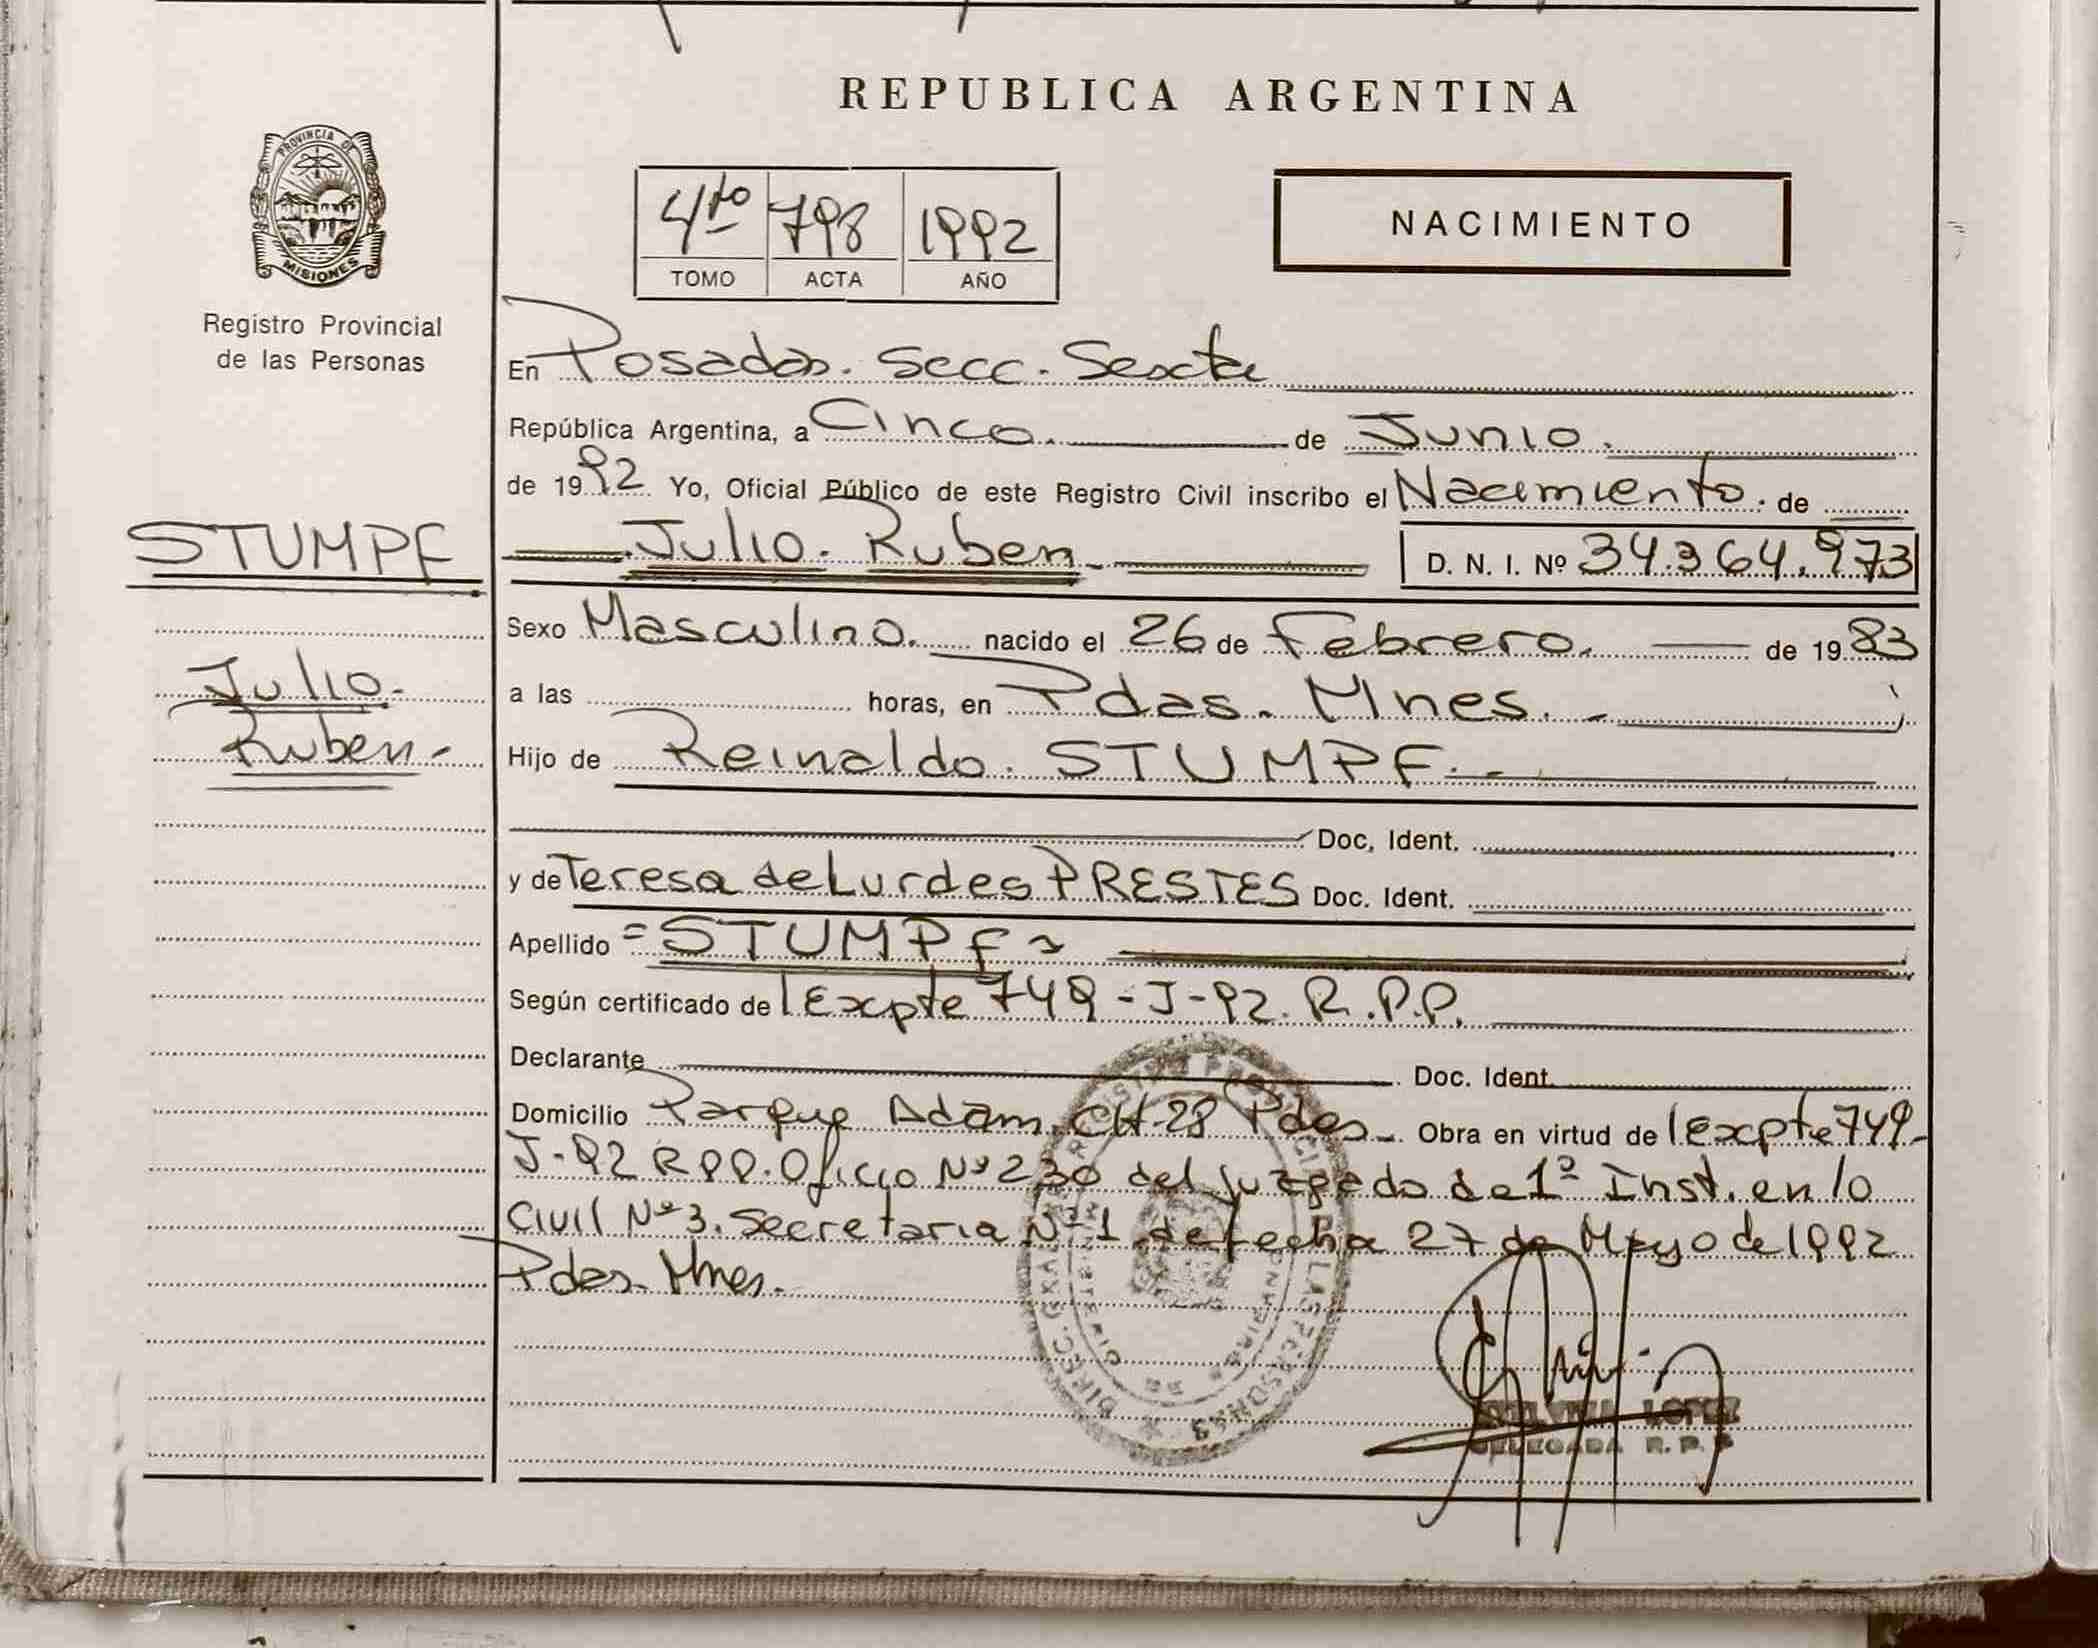 REPUBLICA ARGENTINA
PROVINCIA DE
MISIONES
Registro Provincial
de las Personas
4to 798 1992
TOMO ACTA AÑO
NACIMIENTO
En Posadas. Secc. Sexta
República Argentina, a Cinco. de Junio.
de 1992. Yo, Oficial Público de este Registro Civil inscribo el Nacimiento. de
STUMPF
Julio. Ruben. D. N. I. Nº 34.364.973
Sexo Masculino. nacido el 26 de Febrero. de 1983
Julio.
a las horas, en Pdas. Mnes.
Ruben-
Hijo de Reinaldo. STUMPF.
Doc, Ident.
y de Teresa de Lurdes PRESTES Doc. Ident.
Apellido = STUMPF
Según certificado de Expte 749-J-92. R.P.P.
Declarante Doc. Ident.
Domicilio Parque Adam. CH-28 Pdas. Obra en virtud de Expte 749-
J-92 RPP. Oficio Nº 230 del Juzgado de 1º Inst. en lo
Civil Nº 3. Secretaria Nº 1 de fecha 27 de Mayo de 1992
Pdas. Mnes.
LAS PERSONAS
LOPEZ
DELEGADA R. P. P